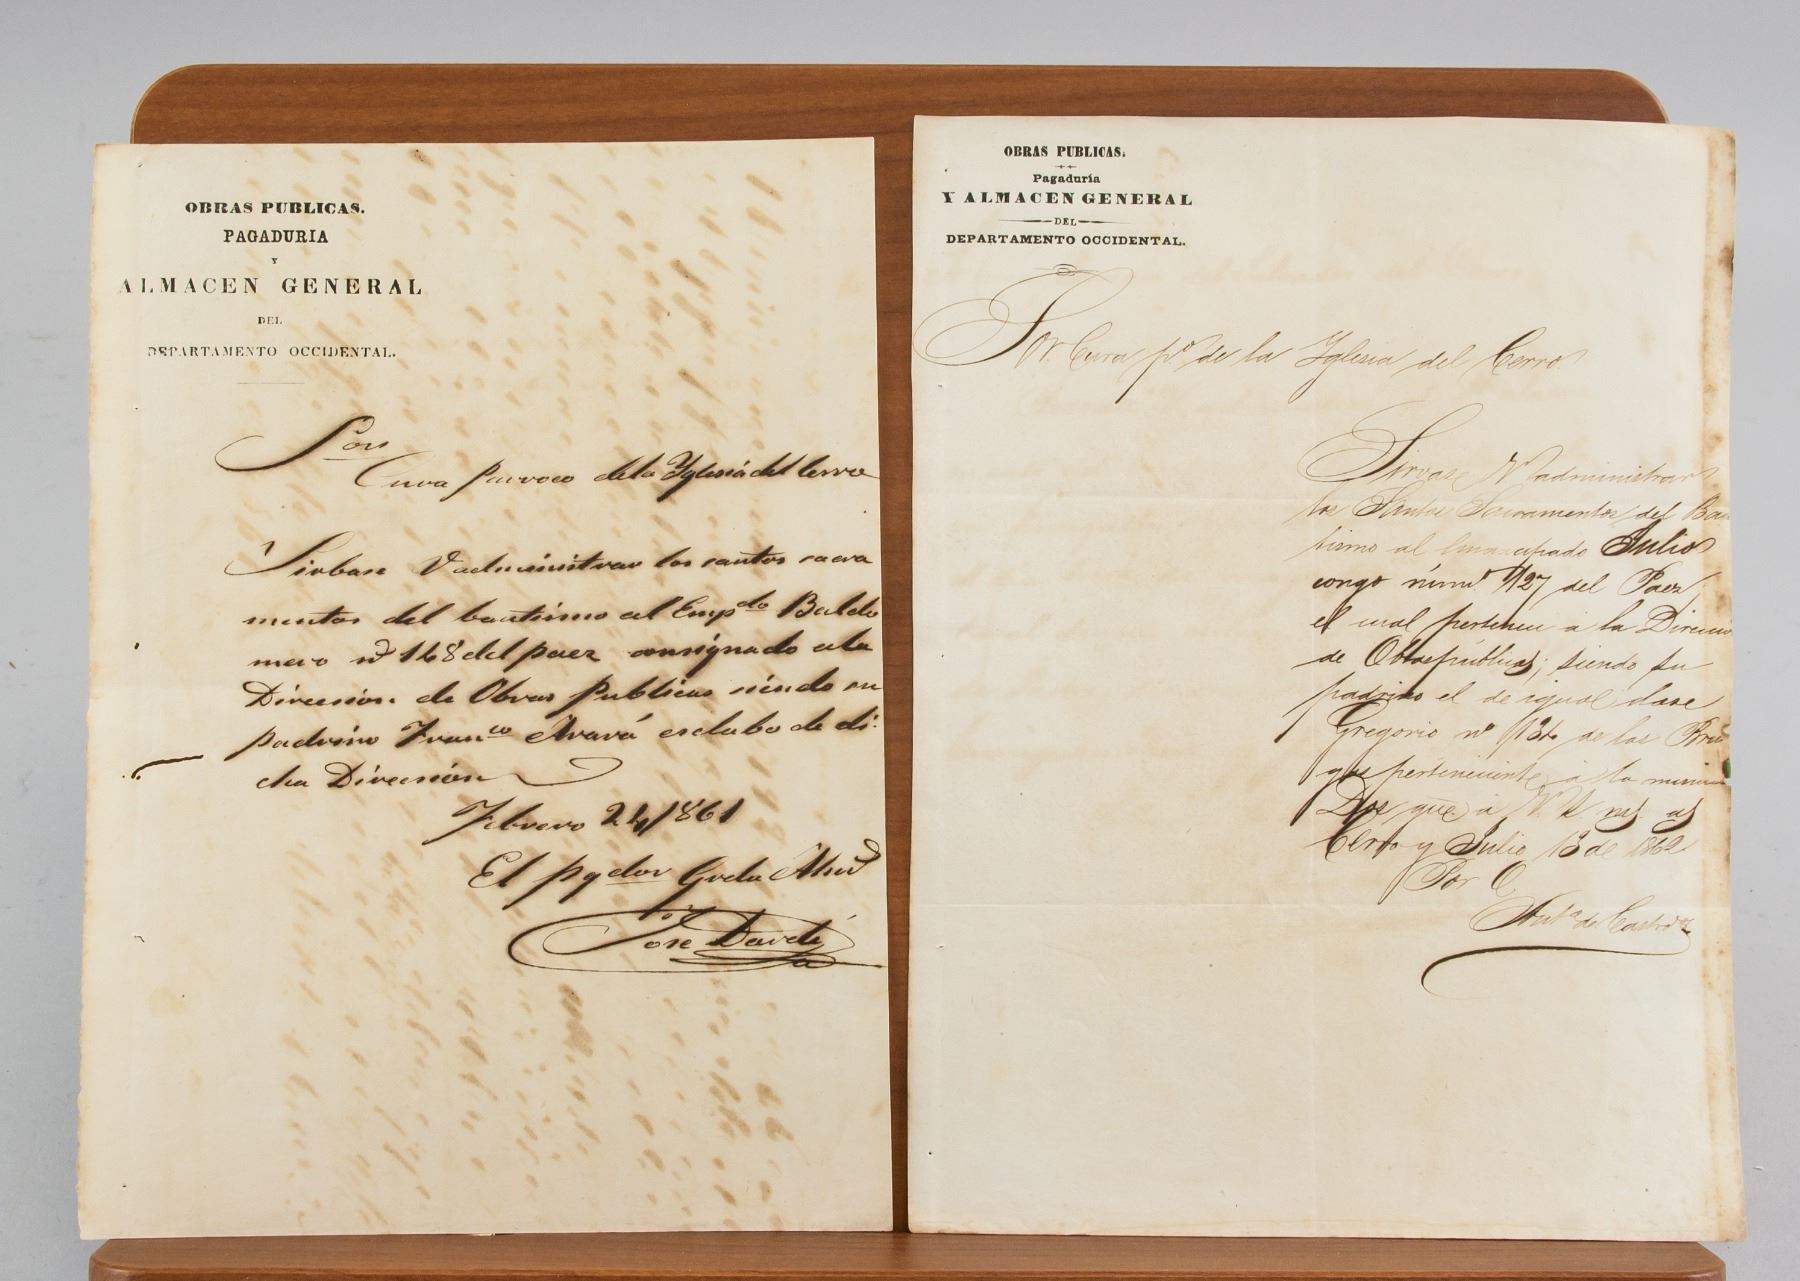 OBRAS PUBLICAS.
PAGADURIA
Y
ALMACEN GENERAL
DEL
DEPARTAMENTO OCCIDENTAL.
Sor
Cura parroco de la Yglesia del Cerro
Sirbase V administrar los santos sacra
mentos del bautismo al Empdo Baldo
mero no 168 del paez consignado ala
Direcsion de Obras Publicas siendo su
padrino Franco Arará esclabo de di-
cha Direcsion
Febrero 24/1861
El pgdor Grda
Jose
OBRAS PUBLICAS.
Pagaduría
Y ALMACEN GENERAL
DEL
DEPARTAMENTO OCCIDENTAL.
Sor. Cura po de la Yglesia del Cerro
Sirvase V administrar
los Santos Sacramentos del Bau
tismo al Emancipado Julio
congo númo 127 del Paez,
el cual pertenece á la Direccion
de Obras públicas; siendo su
padrino el de igual clase
Gregorio no de los
perteneciente á la misma
Dios gue á V
Cerro y Julio 13 de 1862
Por O
Anto de Castro